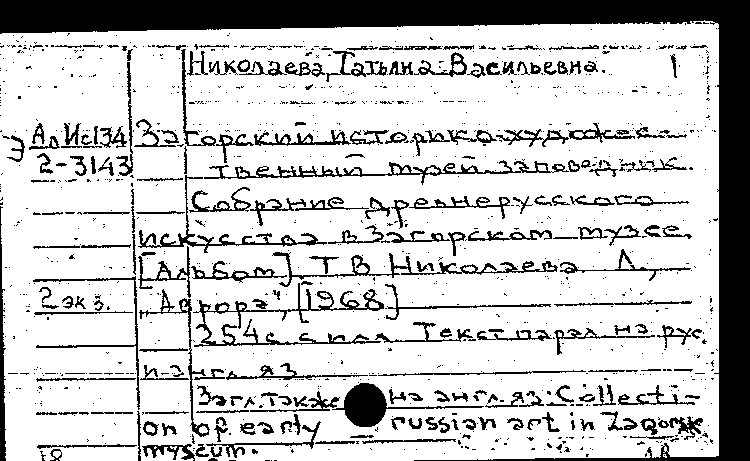 Николаева, Татьяна Васильевна. 1
Э АлИс134 Загорский историко-художес-
2-3143 твенный музей заповедник.
Собрание древнерусского
искусства в Загорском музее.
[Альбом]. Т В Николаева. Л.,
2 экз. „Аврора", [1968]
254 с. с илл Текст парал на рус.
и англ яз
Загл. также на англ. яз: Collecti-
on of early russian art in Zagorsk
museum.